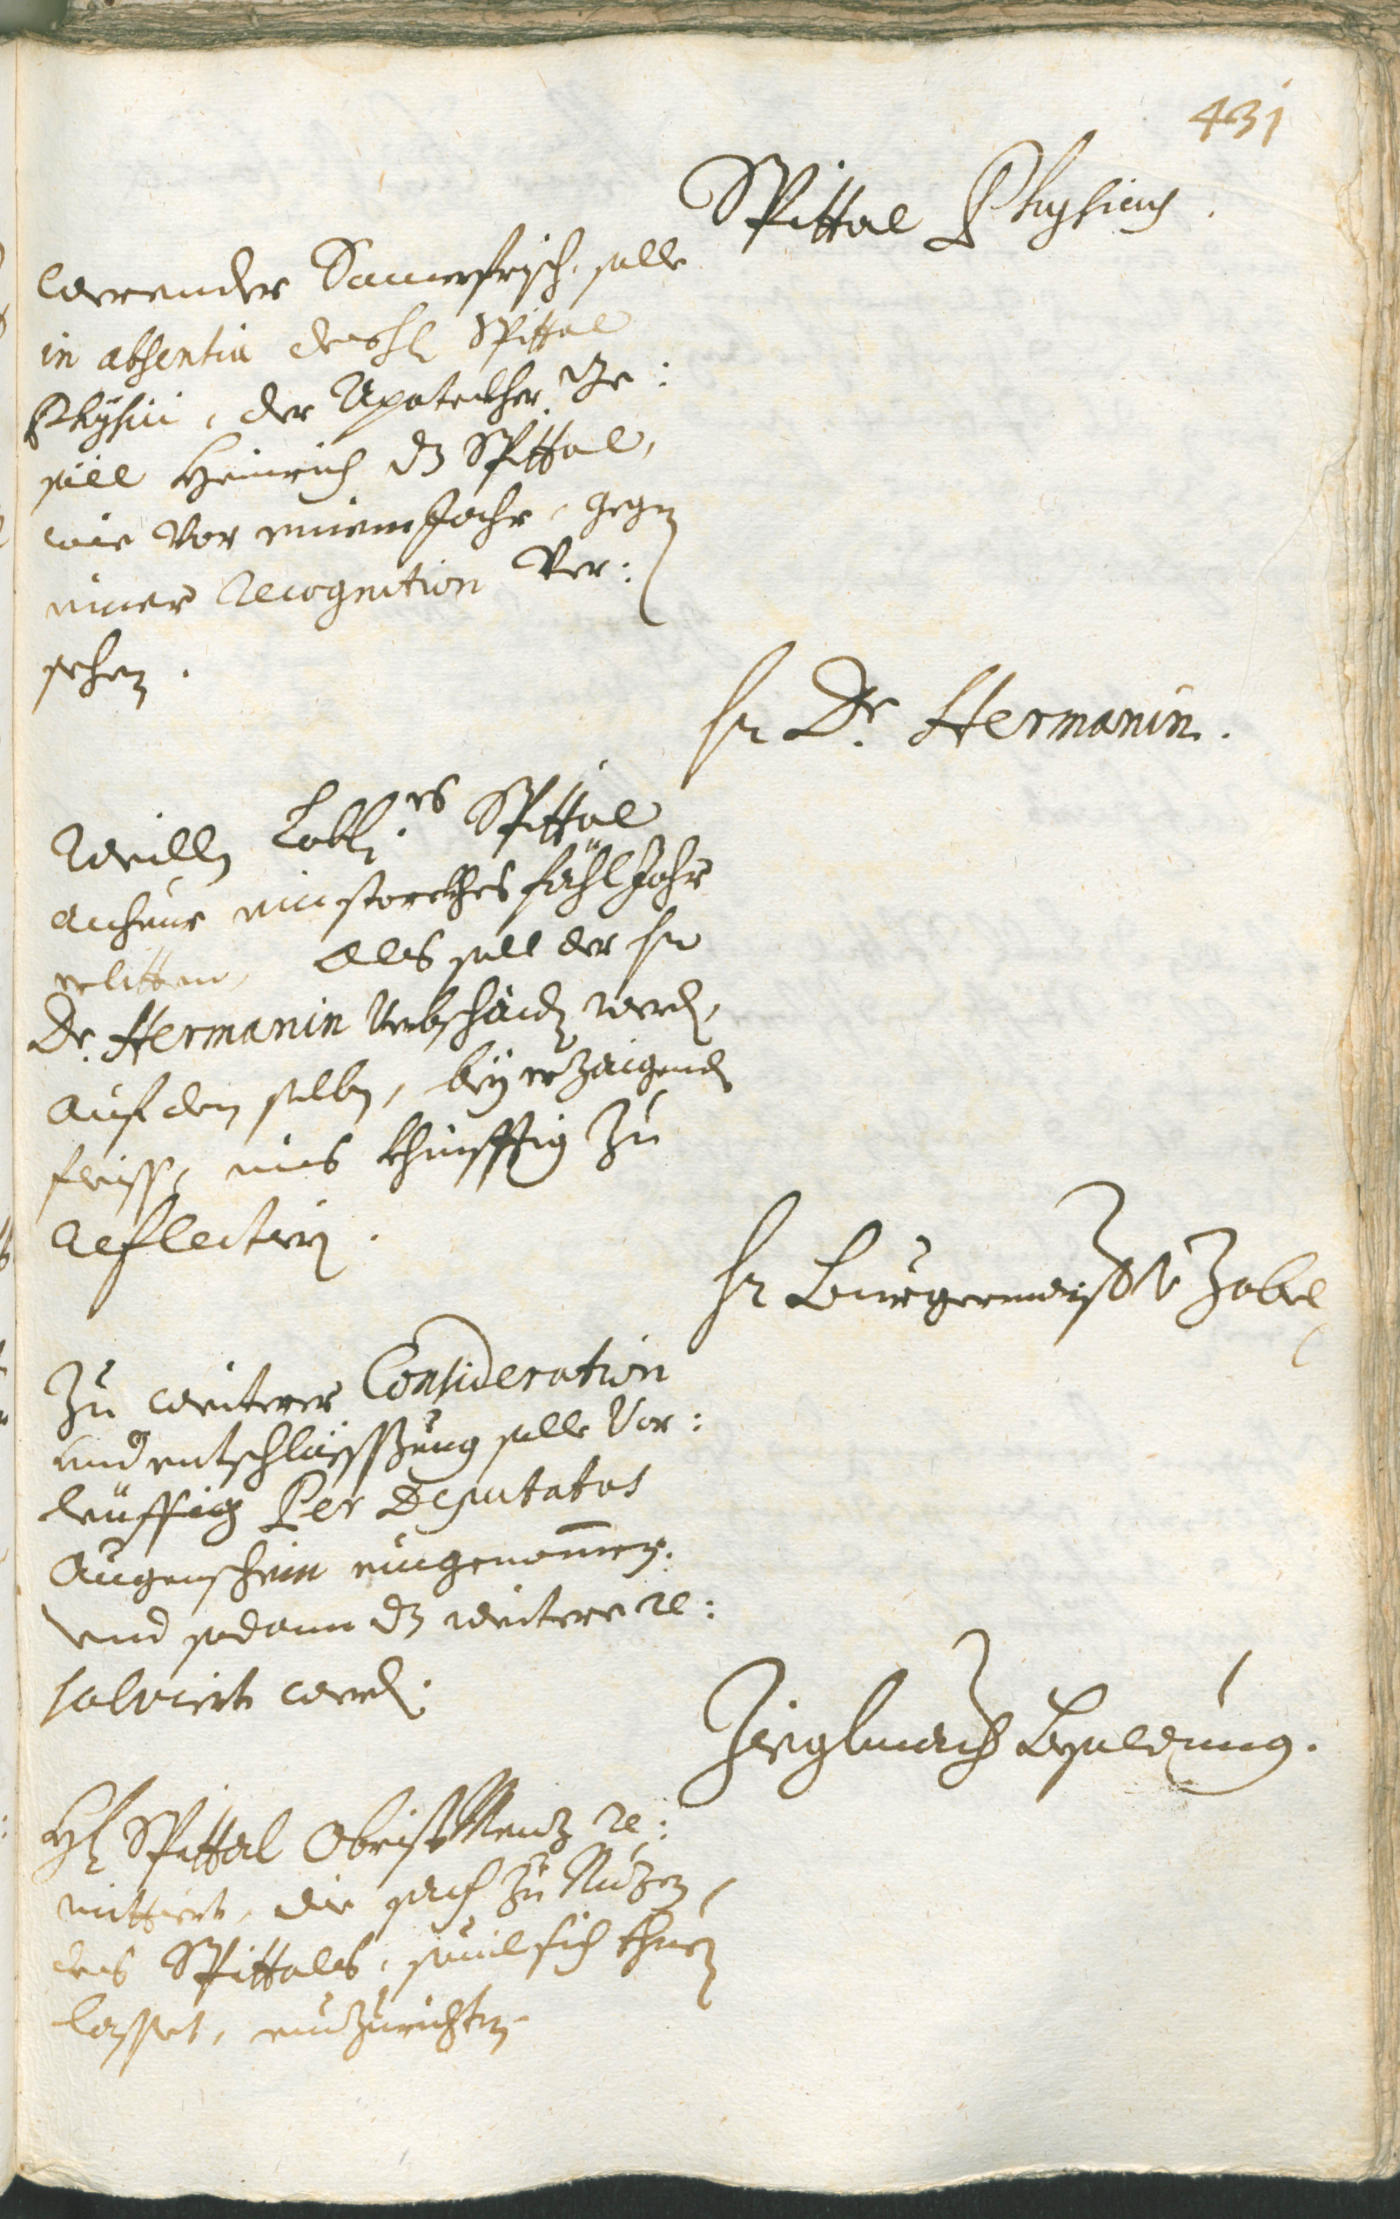 431
Spittal Physicus.
Werender Sumerfrisch, solle
in absentia des hl Spittal
Physici, der Apoteckher Ge:
söll Heinrich dz Spittal,
wie vor einem Jahr, gegen
einer Recognition ver:
sehen.
Hr Dr. Hermanin.
Weillen Lobl.es Spittal
ain starckhes fähl Jahr
erlitten, Als soll der Hr
Dr. Hermanin verbschaiden werd,
auf den selben, bey erzaigenden
fleiss, ins khinfftig zu
Reflectiern.
Hr Burgermaister Zobel
Zu weiterer Consideration
und entschliessung solle vor:
leüffig Per Deputatos
Augenschein eingenomen,
und sodann dz weitere re:
solviert werd.
Zieglmach Besoldung.
Hl Spittal Obrist Menz re:
mittiert, die sach zu Nuzen
des Spittals, sovil sich thuen
lasset, einzurichten.